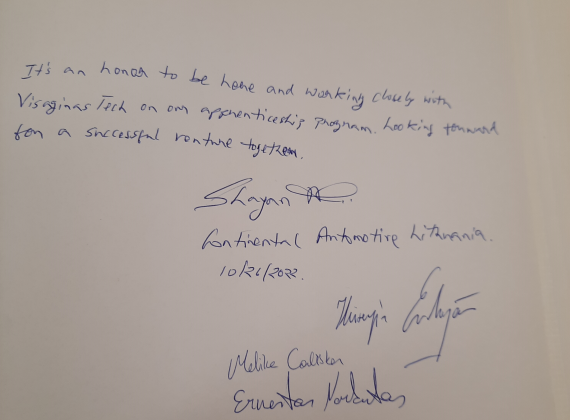 It's an honor to be here and working closely with
Visaginas Tech on our apprenticeship program. Looking forward
for a successful venture together.
Shayan
Continental Automotive Lithuania.
10/26/2022.
Melike Caliskan
Ernestas